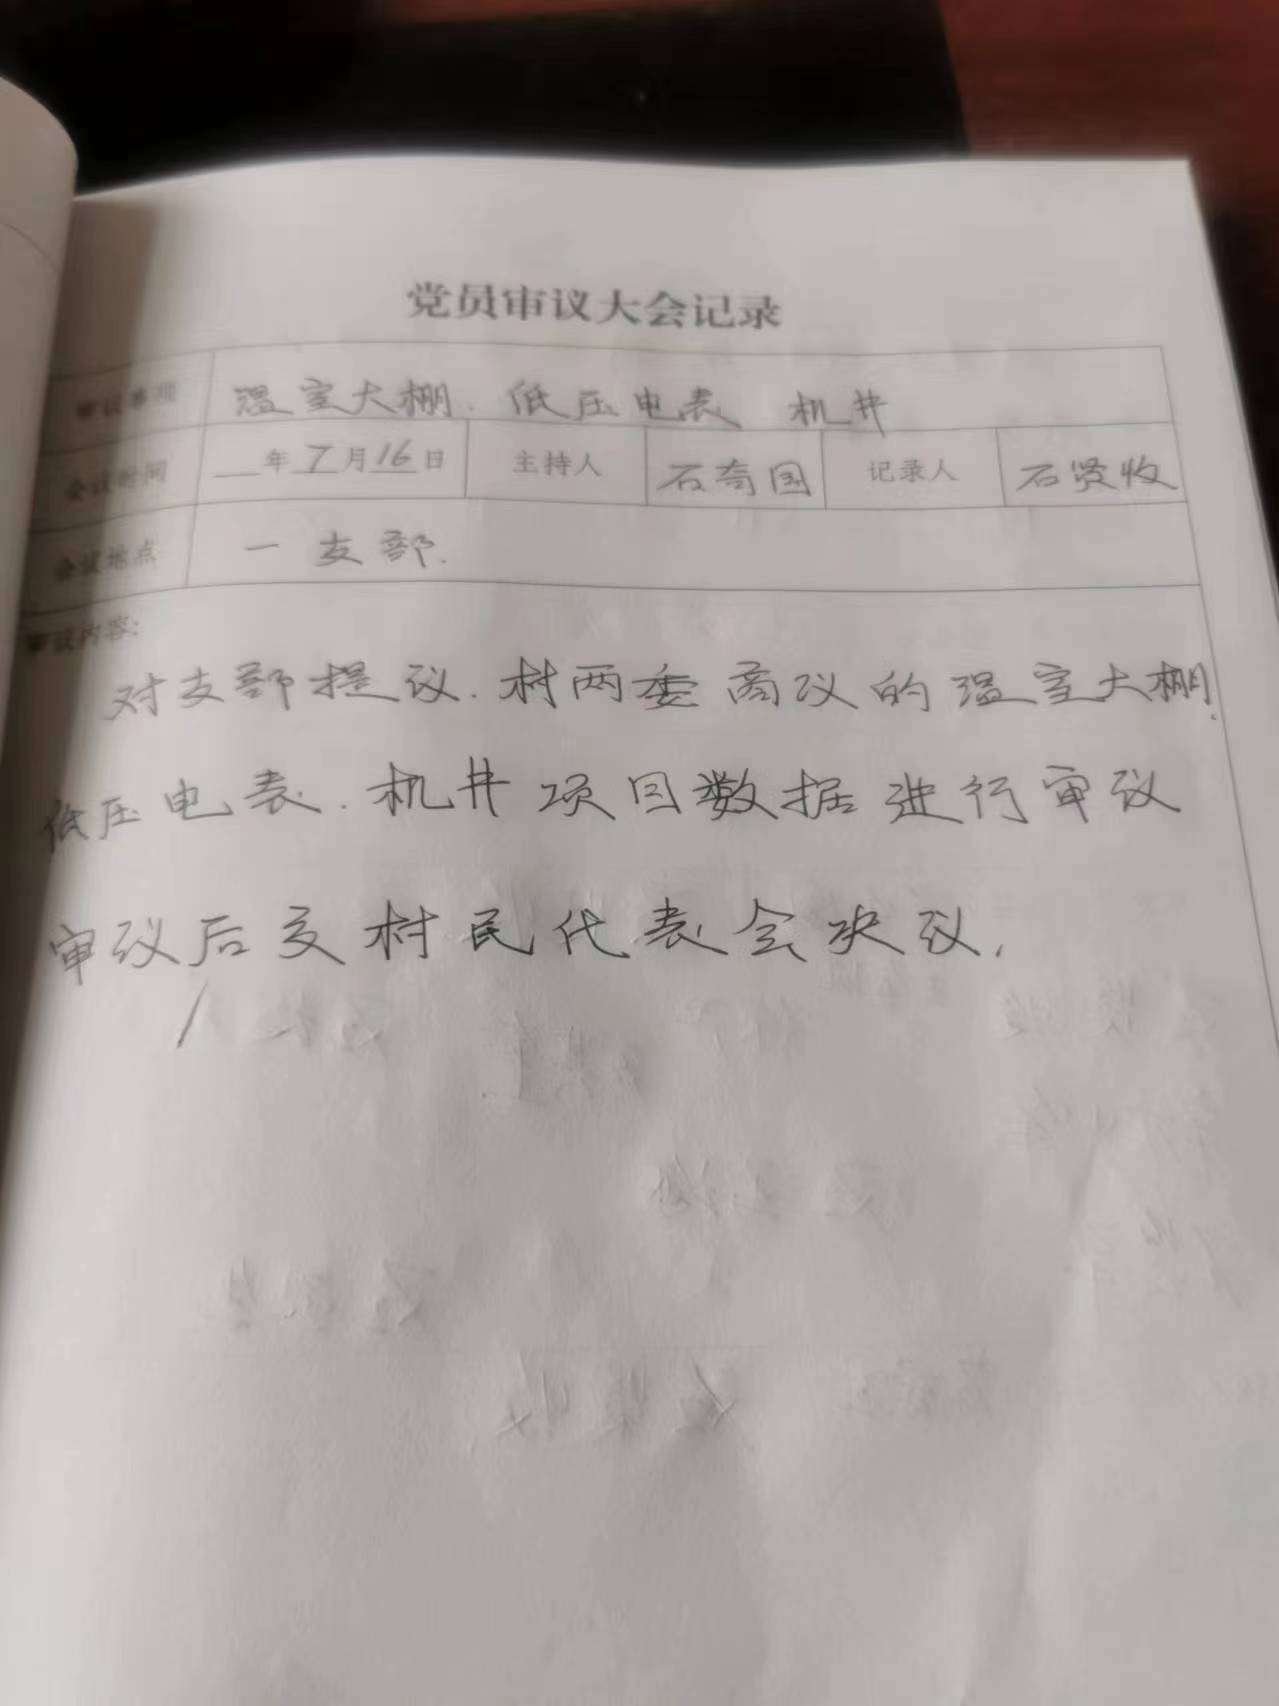 党员审议大会记录
审议事项 温室大棚. 低压电表 机井
会议时间 __年 7 月 16 日 主持人 石奇国 记录人 石贤收
会议地点 一支部.
审议内容:
对支部提议. 村两委商议的温室大棚.
低压电表. 机井项目数据进行审议
审议后交村民代表会决议.